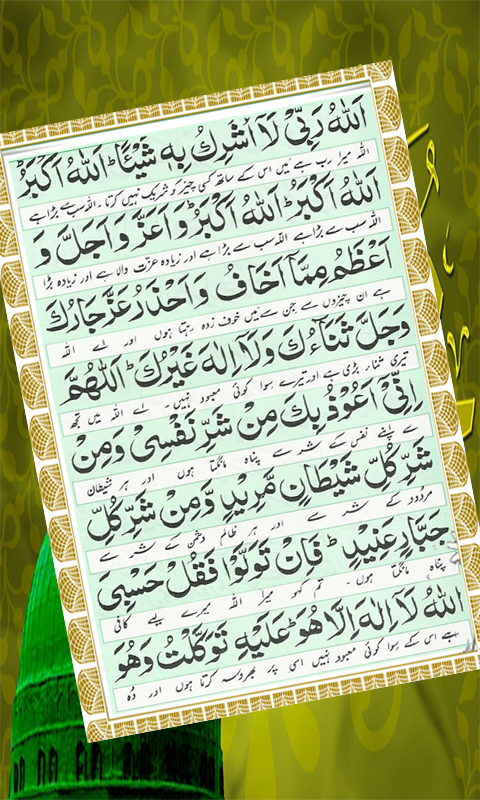 اَللّٰهُ رَبِّیْ لَاۤ اُشْرِكُ بِهٖ شَیْئًا ؕ اَللّٰهُ اَكْبَرُ
اللہ میرا رب ہے میں اس کے ساتھ کسی چیز کو شریک نہیں کرتا۔ اللہ سب سے بڑا ہے
اَللّٰهُ اَكْبَرُ ؕ اَللّٰهُ اَكْبَرُ وَ اَعَزُّ وَ اَجَلُّ وَ
اللہ سب سے بڑا ہے اللہ سب سے بڑا ہے اور زیادہ عزت والا ہے اور زیادہ بڑا
اَعْظَمُ مِمَّاۤ اَخَافُ وَ اَحْذَرُ عَزَّ جَارُكَ
ہے ان چیزوں سے جن سے میں خوف زدہ رہتا ہوں اور اے اللہ
وَجَلَّ ثَنَآءُكَ وَلَاۤ اِلٰهَ غَیْرُكَ ؕ اَللّٰهُمَّ
تیری ثنار بڑی ہے اور تیرے سوا کوئی معبود نہیں۔ اے اللہ میں تجھ
اِنِّیْۤ اَعُوْذُ بِكَ مِنْ شَرِّ نَفْسِیْ وَمِنْ
سے اپنے نفس کے شر سے پناہ مانگتا ہوں اور ہر شیطان
شَرِّ كُلِّ شَیْطَانٍ مَّرِیْدٍ وَّمِنْ شَرِّ كُلِّ
مردود کے شر سے اور ہر ظالم دشمن کے شر سے
جَبَّارٍ عَنِیْدٍ ؕ فَاِنْ تَوَلَّوْا فَقُلْ حَسْبِیَ
پناہ مانگتا ہوں۔ تم کہو میرا اللہ میرے لیے کافی
اللّٰهُ لَاۤ اِلٰهَ اِلَّا هُوَ عَلَیْهِ تَوَكَّلْتُ وَهُوَ
ہے اس کے سوا کوئی معبود نہیں اسی پر بھروسہ کرتا ہوں اور وہ